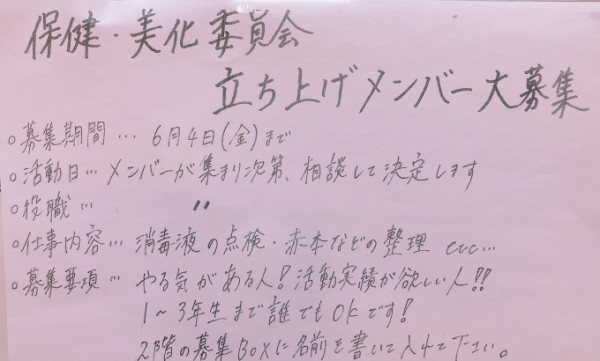 保健・美化委員会
立ち上げメンバー大募集
○募集期間… 6月4日(金)まで
○活動日…メンバーが集まり次第、相談して決定します
○役職… 〃
○仕事内容… 消毒液の点検・赤本などの整理 etc...
○募集要項… やる気がある人!活動実績が欲しい人!!
1~3年生まで誰でもOKです!
2階の募集BOXに名前を書いて入れて下さい。